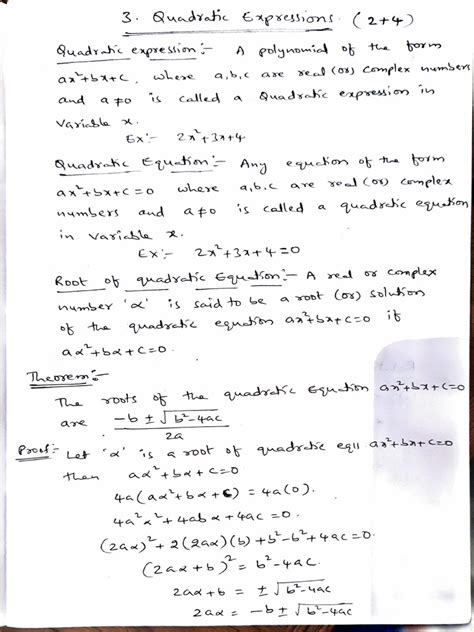 3. Quadratic Expressions. (2+4)
Quadratic expression:- A polynomial of the form
ax²+bx+c, where a,b,c are real (or) complex numbers
and a≠0 is called a Quadratic expression in
Variable x.
Ex:- 2x²+3x+4
Quadratic Equation:- Any equation of the form
ax²+bx+c=0 where a,b,c are real (or) complex
numbers and a≠0 is called a quadratic equation
in Variable x.
Ex:- 2x²+3x+4=0
Root of quadratic Equation:- A real or complex
number 'α' is said to be a root (or) solution
of the quadratic equation ax²+bx+c=0 if
aα²+bα+c=0.
Theorem:-
The roots of the quadratic Equation ax²+bx+c=0
are (-b ± √(b²-4ac))/2a
Proof:- Let 'α' is a root of quadratic eqn ax²+bx+c=0
then aα²+bα+c=0
4a(aα²+bα+c) = 4a(0).
4a²α²+4abα+4ac=0.
(2aα)²+2(2aα)(b)+b²-b²+4ac=0.
(2aα+b)² = b²-4ac.
2aα+b = ±√(b²-4ac)
2aα = -b±√(b²-4ac)